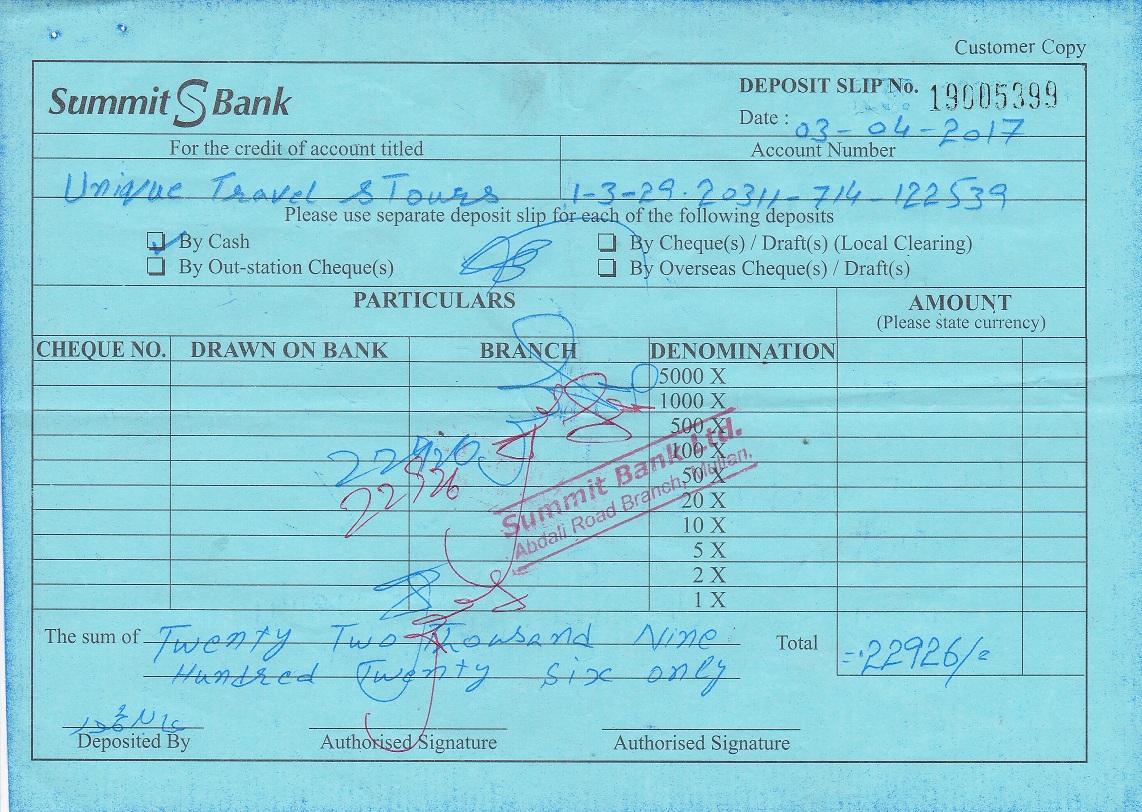 Customer Copy
Summit S Bank
DEPOSIT SLIP No. 19005399
Date : 03-04-2017
For the credit of account titled
Account Number
Unique Travel & Tours
1-3-29-20311-714-122539
Please use separate deposit slip for each of the following deposits
By Cash
By Cheque(s) / Draft(s) (Local Clearing)
By Out-station Cheque(s)
By Overseas Cheque(s) / Draft(s)
PARTICULARS
AMOUNT
(Please state currency)
CHEQUE NO. DRAWN ON BANK BRANCH DENOMINATION
5000 X
1000 X
500 X
100 X
50 X
20 X
10 X
5 X
2 X
1 X
22926
Summit Bank Ltd.
Abdali Road Branch, Multan.
The sum of Twenty Two Thousand Nine
Hundred Twenty Six only
Total
22926/=
Deposited By
Authorised Signature
Authorised Signature